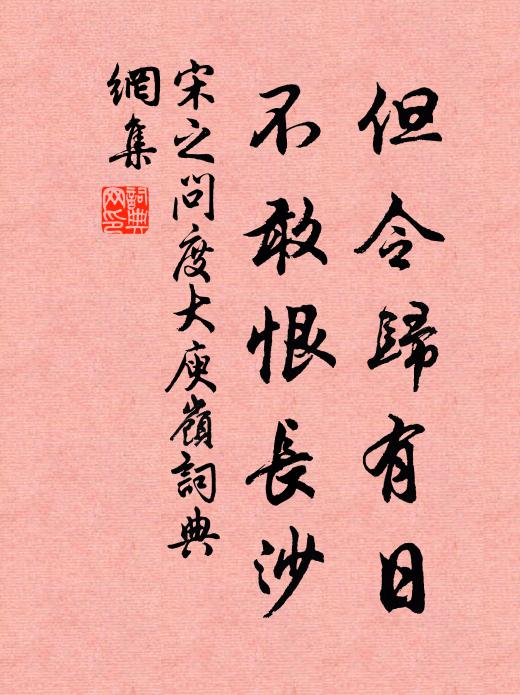 但令歸有日
不敢恨長沙
宋之问度大庾嶺詞典
網集
詞典
网印